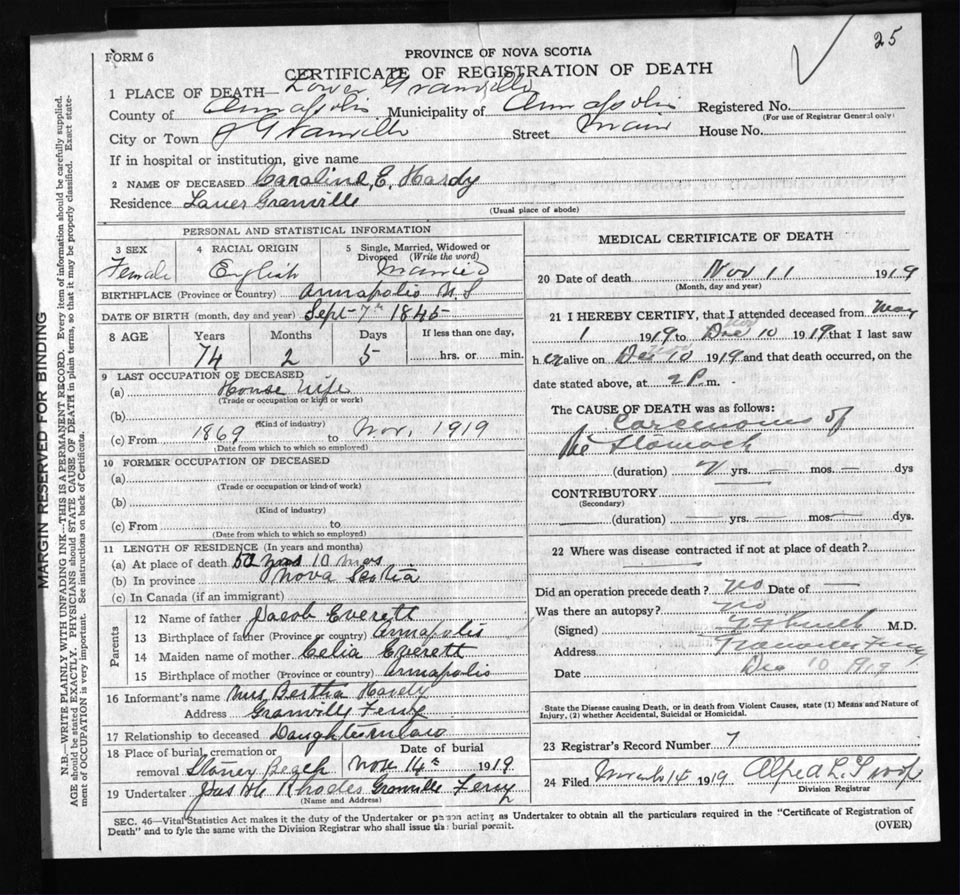 25
FORM 6
PROVINCE OF NOVA SCOTIA
CERTIFICATE OF REGISTRATION OF DEATH
1 PLACE OF DEATH— Lower Granville
County of Annapolis Municipality of Annapolis Registered No.
(For use of Registrar General only)
City or Town Granville Street Main House No.
If in hospital or institution, give name
2 NAME OF DECEASED Caroline, E. Hardy
Residence Lower Granville
(Usual place of abode)
PERSONAL AND STATISTICAL INFORMATION
3 SEX 4 RACIAL ORIGIN 5 Single, Married, Widowed or Divorced (Write the word)
Female English Married
BIRTHPLACE (Province or Country) Annapolis N.S
DATE OF BIRTH (month, day and year) Sept 7th 1845
8 AGE Years Months Days If less than one day,
74 2 5 hrs. or min.
9 LAST OCCUPATION OF DECEASED
(a) House Wife
(Trade or occupation or kind or work)
(b)
(Kind of industry)
(c) From 1869 to Nov, 1919
(Date from which to which so employed)
10 FORMER OCCUPATION OF DECEASED
(a)
(Trade or occupation or kind of work)
(b)
(Kind of industry)
(c) From to
(Date from which to which so employed)
11 LENGTH OF RESIDENCE (In years and months)
(a) At place of death 50 yrs 10 mos
(b) In province Nova Scotia
(c) In Canada (if an immigrant)
Parents
12 Name of father Jacob Everett
13 Birthplace of father (Province or country) Annapolis
14 Maiden name of mother Celia Everett
15 Birthplace of mother (Province or country) Annapolis
16 Informant's name Mrs Bertha Hardy
Address Granville Ferry
17 Relationship to deceased Daughterinlaw
18 Place of burial, cremation or removal Stoney Beach Date of burial Nov 14th 1919
19 Undertaker Jas Rhodes Granville Ferry
(Name and Address)
MEDICAL CERTIFICATE OF DEATH
20 Date of death Nov 11 1919
(Month, day and year)
21 I HEREBY CERTIFY, that I attended deceased from May
1 1919 to Dec 10 1919 that I last saw
her alive on Dec 10 1919 and that death occurred, on the
date stated above, at 2 P. m.
The CAUSE OF DEATH was as follows:
Carcinoma of
the Stomach
(duration) 2 yrs. — mos. — dys
CONTRIBUTORY
(Secondary)
(duration) yrs. mos. dys.
22 Where was disease contracted if not at place of death?
Did an operation precede death? no Date of
Was there an autopsy? no
(Signed) M.D.
Address Granville Ferry
Date Dec 10 1919
State the Disease causing Death, or in death from Violent Causes, state (1) Means and Nature of
Injury, (2) whether Accidental, Suicidal or Homicidal.
23 Registrar's Record Number 7
24 Filed 14 1919 Alfred L. Troop
Division Registrar
SEC. 46—Vital Statistics Act makes it the duty of the Undertaker or person acting as Undertaker to obtain all the particulars required in the "Certificate of Registration of
Death" and to fyle the same with the Division Registrar who shall issue the burial permit.
(OVER)
MARGIN RESERVED FOR BINDING
N.B.—WRITE PLAINLY WITH UNFADING INK—THIS IS A PERMANENT RECORD. Every item of information should be carefully supplied.
AGE should be stated EXACTLY. PHYSICIANS should STATE CAUSE OF DEATH in plain terms, so that it may be properly classified. Exact state-
ment of OCCUPATION is very important. See instructions on back of Certificate.